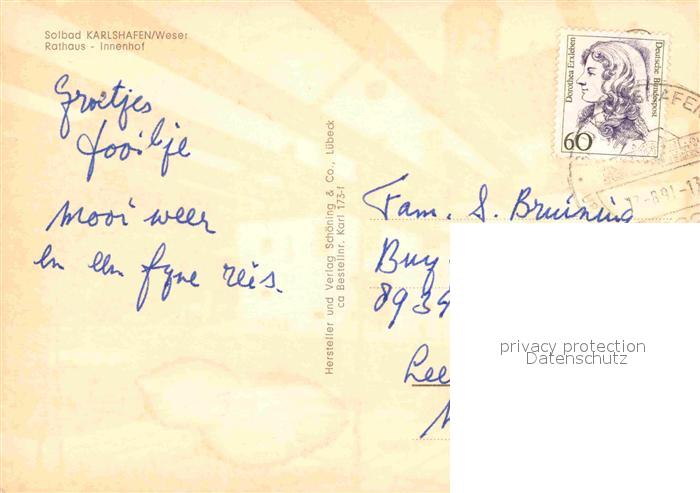 Solbad KARLSHAFEN/Weser
Rathaus - Innenhof
Groetjes
Mooi weer
en een fyne reis.
Hersteller und Verlag Schöning & Co., Lübeck
ca Bestellnr. Karl 173-f
Dorothea Erxleben
Deutsche Bundespost
60
Fam. S. Bruining
Buy
8934
Lee
privacy protection
Datenschutz